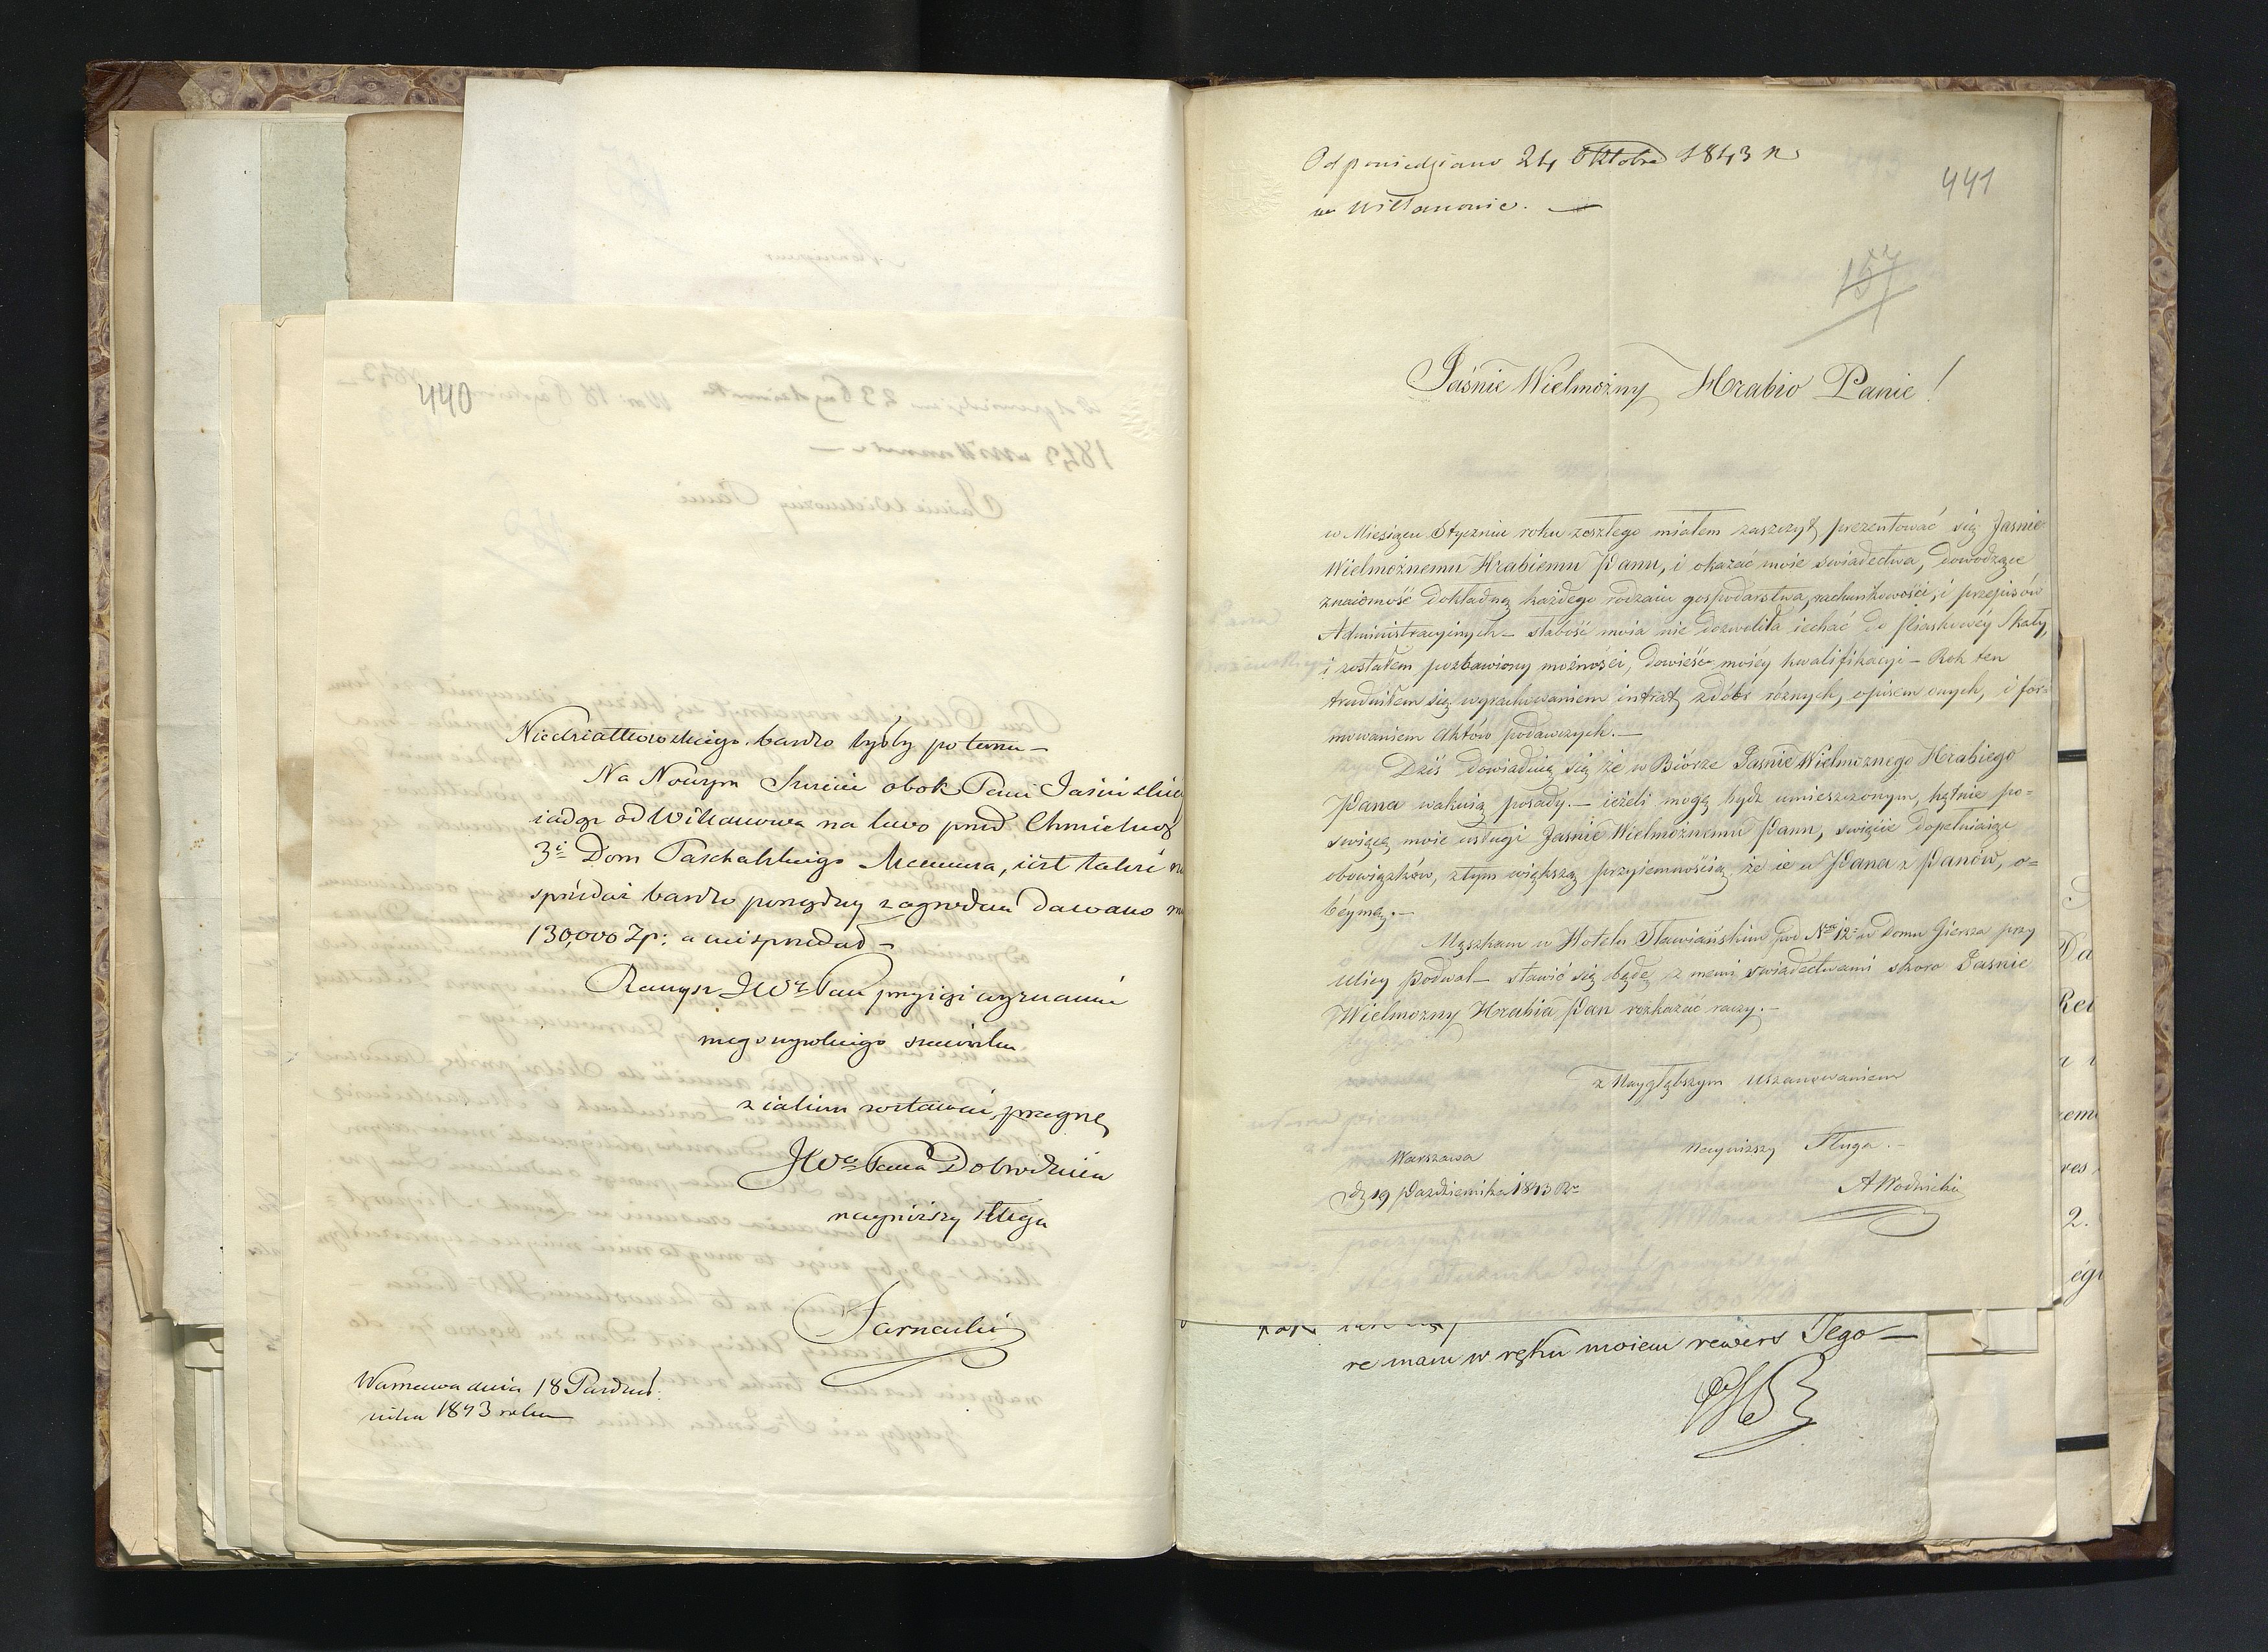 440
Niedziałkowskiego bardzo byłby po temu —
Na Nowym Świecie obok Pani Jasińskiey
iadąc od Willanowa na lewo przed Chmielną
3i Dom Paschalskiego Mecenasa, iest także na
sprzedaż bardzo porządny z ogrodem dawano mu
130,000 Zp: a nie sprzedał —
Raczysz JWy Pan przyiąć wyznanie
mego wysokiego szacunku
z iakim zostawać pragnę
JWo Pana Dobrodzieia
nayniższy sługa
Jarnacki
Warszawa dnia 18 Paździer:
nika 1843 roku
Odpowiedziano 24 Oktobra 1843 R
w Willanowie. —
441
157
Jaśnie Wielmożny Hrabio Panie!
w Miesiącu Styczniu roku zeszłego miałem zaszczyt prezentować się Jasnie
Wielmożnemu Hrabiemu Panu, i okazać moie swiadectwa, dowodzące
znaiomość dokładną każdego rodzaiu gospodarstwa, rachunkowości, i przepisów
Administracyinych — słabość moia nie dozwoliła iechać do Piaskowéy Skały,
i zostałem pozbawiony możności, dowieść moiéy kwalifikacyi — Rok ten
trudniłem się wyrachowaniem intrat z dóbr róznych, opisem onych, i for=
mowaniem Aktów podawczych. —
Dziś dowiaduię się że w Biórze Jasnie Wielmoznego Hrabiego
Pana wakuią posady. — ieżeli mogę bydź umieszczonym, hętnie po=
swięcę moie usługi Jasnie Wielmożnemu Panu, swięcie dopełniaiąc
obowiązków, z tym większą przyiemnością że ie u Pana z Panów, o=
béymę. —
Mąszkam w Hotelu Sławiańskim pod Nrm 12 w Domu Giersza przy
Ulicy Podwal — stawić się będę z memi swiadectwami skoro Jasnie
Wielmozny Hrabia Pan rozkazać raczy. —
z Naygłębszym Uszanowaniem
Nayniższy Sługa. —
Warszawa
dz 19 Października 1843 Ro
AWodnicki
re mam w ręku moiem rewers Jego —